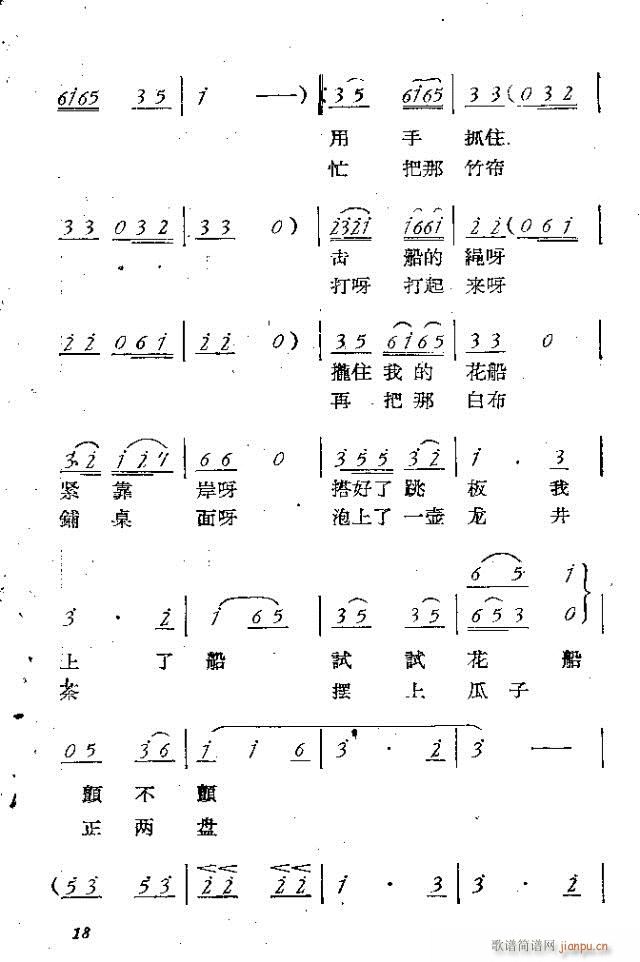 6i65 3 5 | i — ) |: 3 5 6i65 | 3 3 ( 0 3 2 |
用 手 抓住
忙 把那 竹帘
3 3 0 3 2 | 3 3 0 ) | 2321 1661 | 2 2 ( 0 6 i |
击 船的 繩呀
打呀 打起 来呀
2 2 0 6 i | 2 2 0 ) | 3 5 6i65 | 3 3 0 |
攏住 我的 花船
再 把那 白布
3 2 i 2 i | 6 6 0 | 3 5 5 3 3 2 | i · 3 |
紧 靠 岸呀 搭好了 跳 板 我
鋪 桌 面呀 泡上了 一壶 龙 井
6 5 i
3 · 2 | i 6 5 | 3 5 3 5 | 6 5 3 0 |
上 了 船 試 試 花 船
茶 摆 上 瓜 子
0 5 3 6 | i i 6 | 3 · 2 | 3 — |
顫 不 顫
正 两 盘
( 5 3 5 3 | 2 2 2 2 | i · 3 | 3 · 2 |
18
歌谱简谱网 jianpu.cn